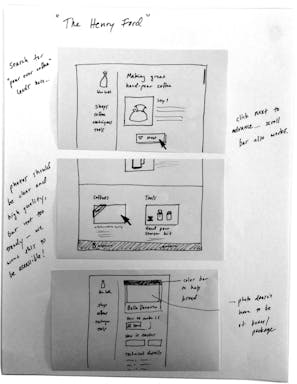 "The Henry Ford"
Search for
"pour over coffee"
leads here...
Making great
hand-pour coffee
shops
coffee
techniques
tools
Step 1
next
click next to
advance... scroll
bar also works.
photos should
be clear and
high quality,
but not too
trendy - we
want this to
be accessible!
Coffees
Tools
Hand pour
starter kit
color bar
to help
brand
Bella Donovan
How to make it
technical details
shops
coffee
techniques
tools
photo doesn't
have to be
of beans/
package.